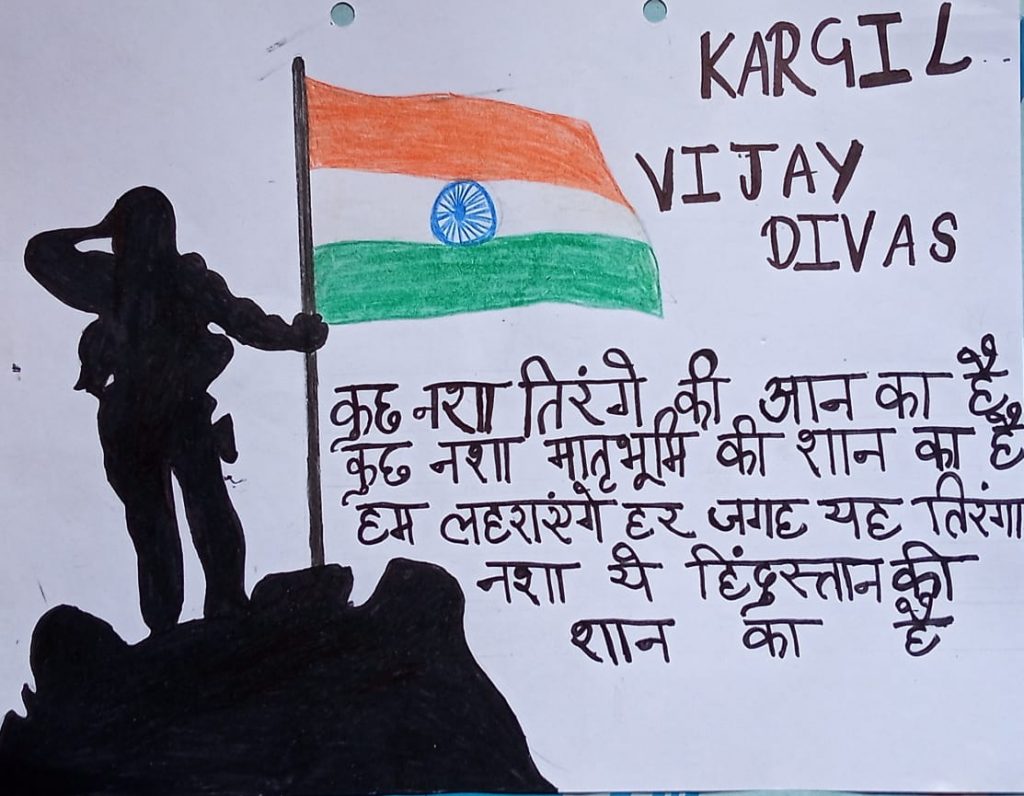 KARGIL
VIJAY
DIVAS
कुछ नशा तिरंगे की आन का है,
कुछ नशा मातृभूमि की शान का है
हम लहराएंगे हर जगह यह तिरंगा
नशा ये हिंदुस्तान की
शान का है